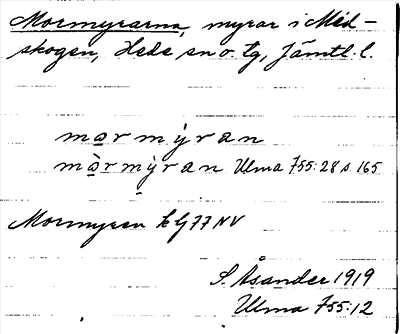 Mormyrarna, myrar i Mid-
skogen, Hede sn o. tg, Jämtl. l.
mo̲rmýran
mò̲rmỳran Ulma 755:28 s. 165
Mormyren bl 77 NV
S. Åsander 1919
Ulma 755:12